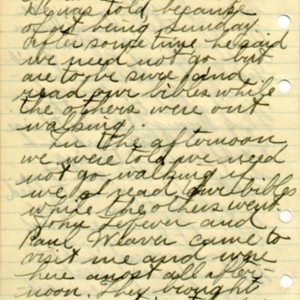 He was told, because
of it being Sunday.
After some time he said
we need not go but
are to give sure and
read our bibles while
the others were out
walking.
In the afternoon
we were told we need
not go walking if
we'd read our bibles
while the others went.
John Lefever and
Paul Weaver came to
visit me and were
here most all after-
noon. They brought